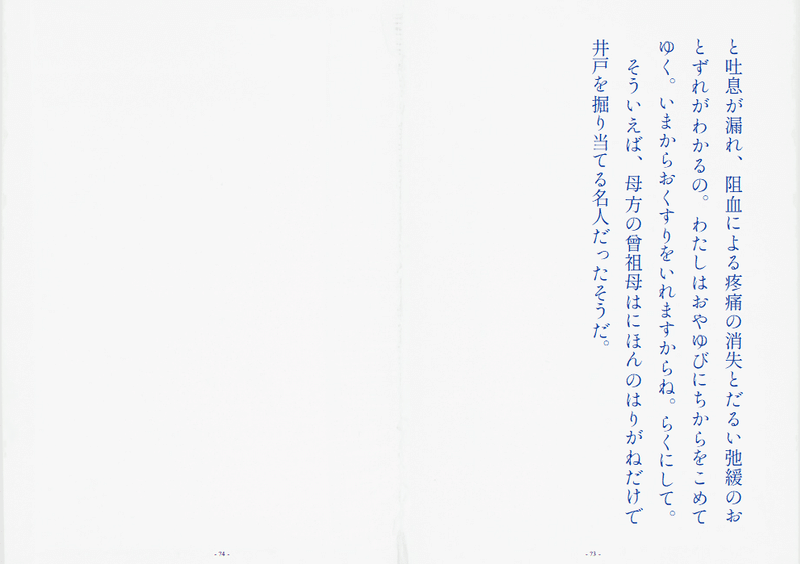 と吐息が漏れ、阻血による疼痛の消失とだるい弛緩のお
とずれがわかるの。わたしはおやゆびにちからをこめて
ゆく。いまからおくすりをいれますからね。らくにして。
そういえば、母方の曾祖母はにほんのはりがねだけで
井戸を掘り当てる名人だったそうだ。
- 23 -
- 24 -